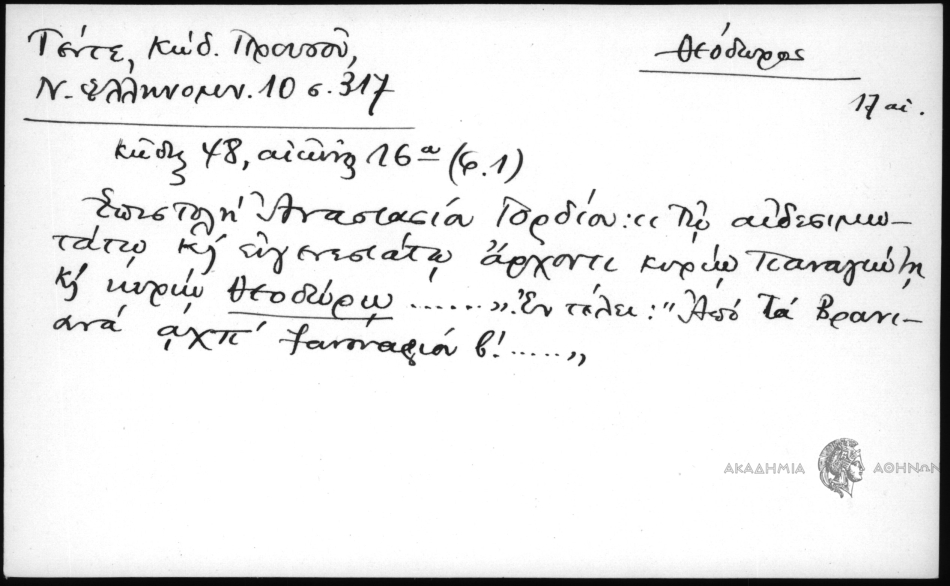 Γέντε, Κώδ. Προυσοῦ,
Ν. Ἑλληνομν. 10 σ. 317
Θεόδωρος
17 αἰ.
κῶδιξ 48, αἰῶνος 16α (φ. 1)
Ἐπιστολὴ Ἀναστασίου Γορδίου: "Τῷ αἰδεσιμω-
τάτῳ κὴ εὐγενεστάτῳ ἄρχοντι κυρίῳ Παναγιώτῃ
κὴ κυρίῳ Θεοδώρῳ ......". Ἐν τέλει: "Ἀπὸ τὰ Βρανι-
ανά ͵αχπ' Ἰανουαρίου β'......"
ΑΚΑΔΗΜΙΑ ΑΘΗΝΩΝ